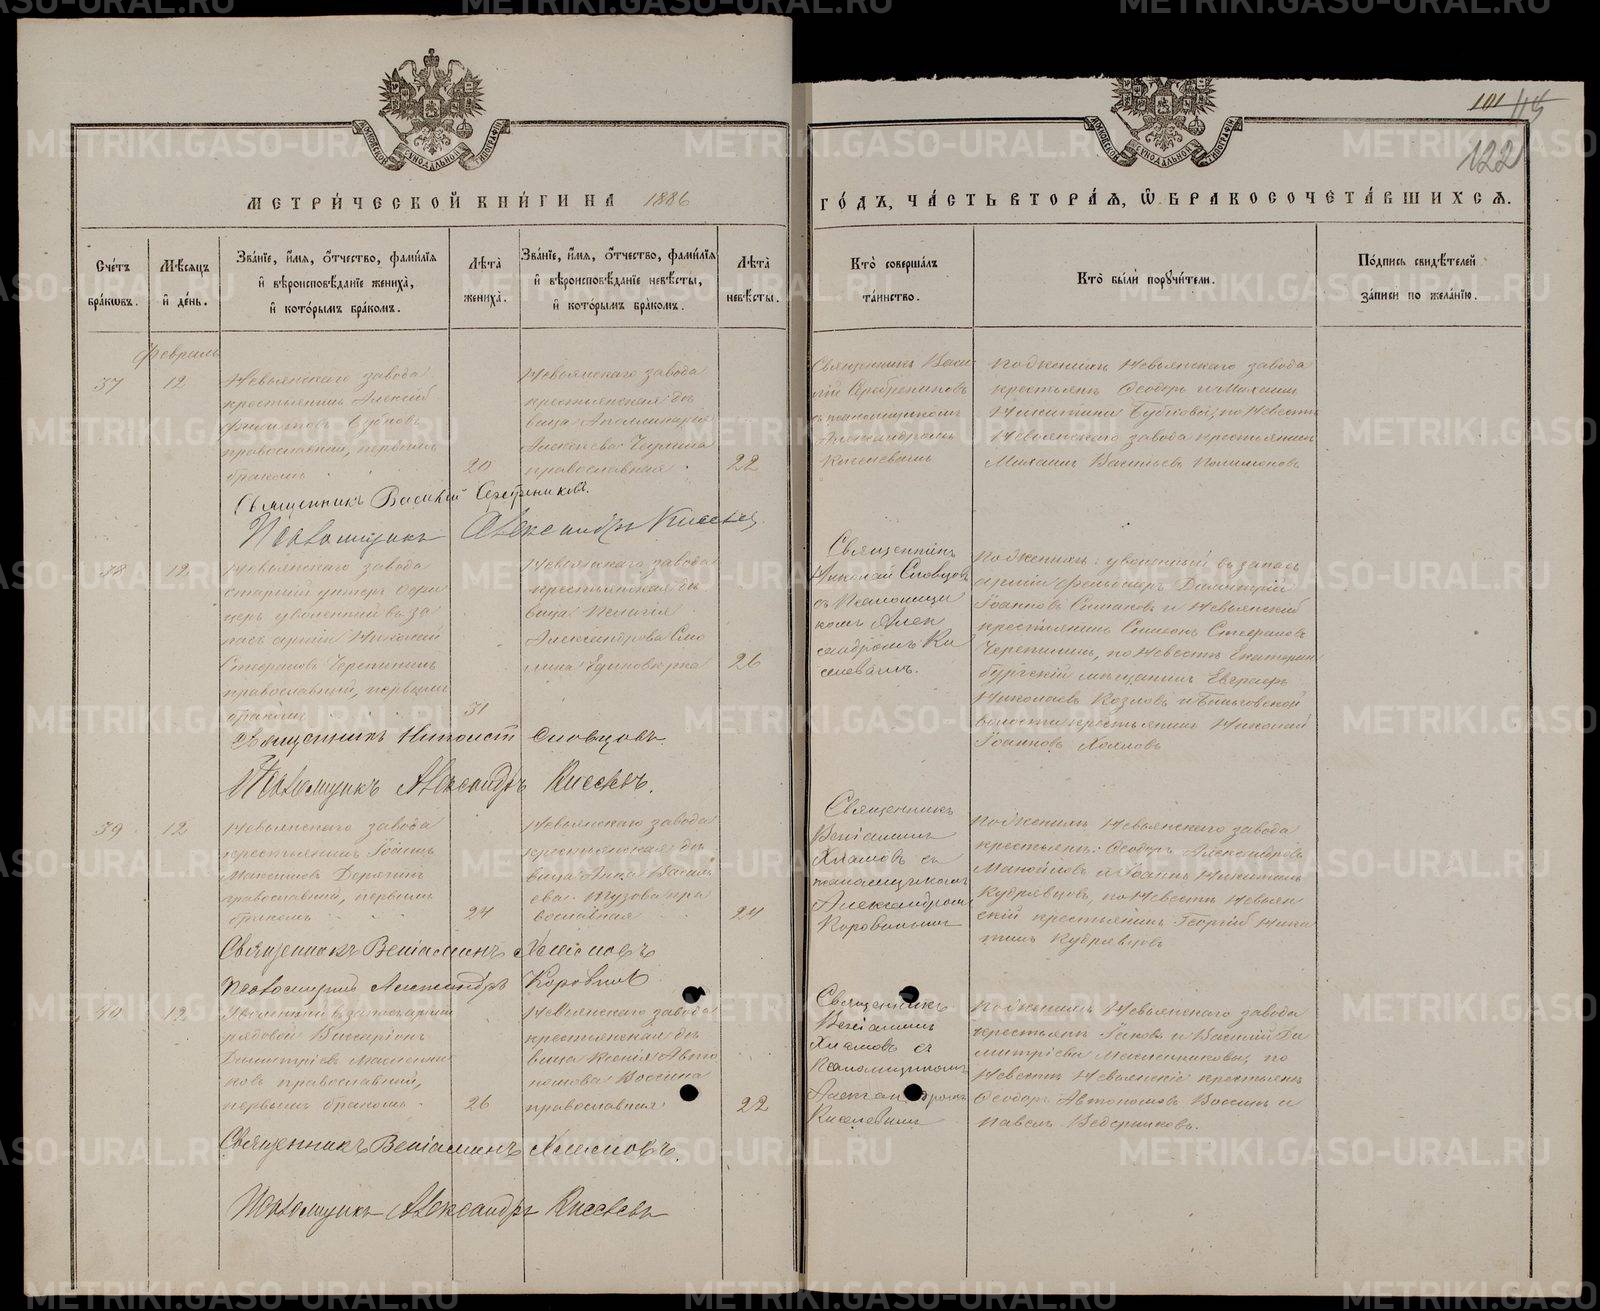 МЕТРИ́ЧЕСКОЙ КНИ́ГИ НА 1886
ГО́ДЪ, ЧА́СТЬ ВТОРА́Я, Ѡ БРАКОСОЧЕТА́ВШИХСЯ.
101 115
122
Московской Сѵнодальной Типографіи
Сче́тъ бра́кωвъ.
Мѣ́сяцъ и҆ де́нь.
Зва́нїе, и҆́мя, ѻ҆́тчество, фами́лїя
и҆ вѣроисповѣ́данїе жениха̀,
и҆ кото́рымъ бра́комъ.
Лѣ́та жениха̀.
Зва́нїе, и҆́мя, ѻ҆́тчество, фами́лїя
и҆ вѣроисповѣ́данїе невѣ́сты,
и҆ кото́рымъ бра́комъ.
Лѣ́та невѣ́сты.
Кто̀ соверша́лъ
та́инство.
Кто̀ бы́ли порꙋчи́тели.
По́дпись свидѣ́телей
за́писи по жела́нїю.
Февраль
37
12
Невьянскаго завода
крестьянинъ Алексѣй
православный, первымъ
бракомъ
20
Невьянскаго завода
крестьянская дѣ
вица Аполинарія
Алексѣева
православная
22
Священникъ Васи
лій Серебрениковъ
съ псаломщикомъ
Александромъ
Киселевымъ
По женихѣ Невьянскаго завода
крестьяне Ѳеодоръ и Михаилъ
Никитины по невѣстѣ
Невьянскаго завода крестьянинъ
Михаилъ Васильевъ
Священникъ Василій Серебрениковъ.
Псаломщикъ Александръ Киселевъ
38
12
Невьянскаго завода
старшій унтеръ офи
церъ уволенный въ за
пасъ арміи Николай
Стефановъ Черепанинъ
православный, первымъ
бракомъ
31
Невьянскаго завода
крестьянская дѣ
вица Пелагія
Александрова Смо
лина единовѣрка
26
Священникъ
Николай Словцовъ
съ Псаломщи
комъ Алек
сандромъ Ки
селевымъ.
По женихѣ: уволенный въ запасъ
арміи фельдшеръ Димитрій
Іоанновъ и Невьянскій
крестьянинъ Симеонъ Стефановъ
Черепанинъ, по невѣстѣ Екатерин
бургскій мѣщанинъ
Николаевъ Козловъ и Быньговской
волости крестьянинъ Николай
Іоанновъ
Священникъ Николай Словцовъ.
Псаломщикъ Александръ Киселевъ.
39
12
Невьянскаго завода
крестьянинъ Іоаннъ
Максимовъ
православный, первымъ
бракомъ
24
Невьянскаго завода
крестьянская дѣ
вица Анна Василь
ева пра
вославная
24
Священникъ
Веніаминъ
Хламовъ съ
псаломщикомъ
Александромъ
Коровинымъ
По женихѣ Невьянскаго завода
крестьяне: Ѳеодоръ Александровъ
Манойловъ и Іоаннъ Никитинъ
Кудрявцовъ, по невѣстѣ Невьян
скій крестьянинъ Георгій Ники
тинъ Кудрявцовъ
Священникъ Веніаминъ Хламовъ
Псаломщикъ Александръ Коровинъ
40
12
Уволенный въ запасъ арміи
рядовой Виссаріонъ
Димитріевъ Маслени
ковъ православный,
первымъ бракомъ
26
Невьянскаго завода
крестьянская дѣ
вица Ксенія Авто
номова Воссина
православная
22
Священникъ
Веніаминъ
Хламовъ съ
Псаломщикомъ
Александромъ
Киселевымъ
По женихѣ Невьянскаго завода
крестьяне Іаковъ и Василій Ди
митріевы Маслениковы, по
невѣстѣ Невьянскіе крестьяне
Ѳеодоръ Автономовъ Воссинъ и
Павелъ Ведерниковъ.
Священникъ Веніаминъ Хламовъ.
Псаломщикъ Александръ Киселевъ
METRIKI.GASO-URAL.RU